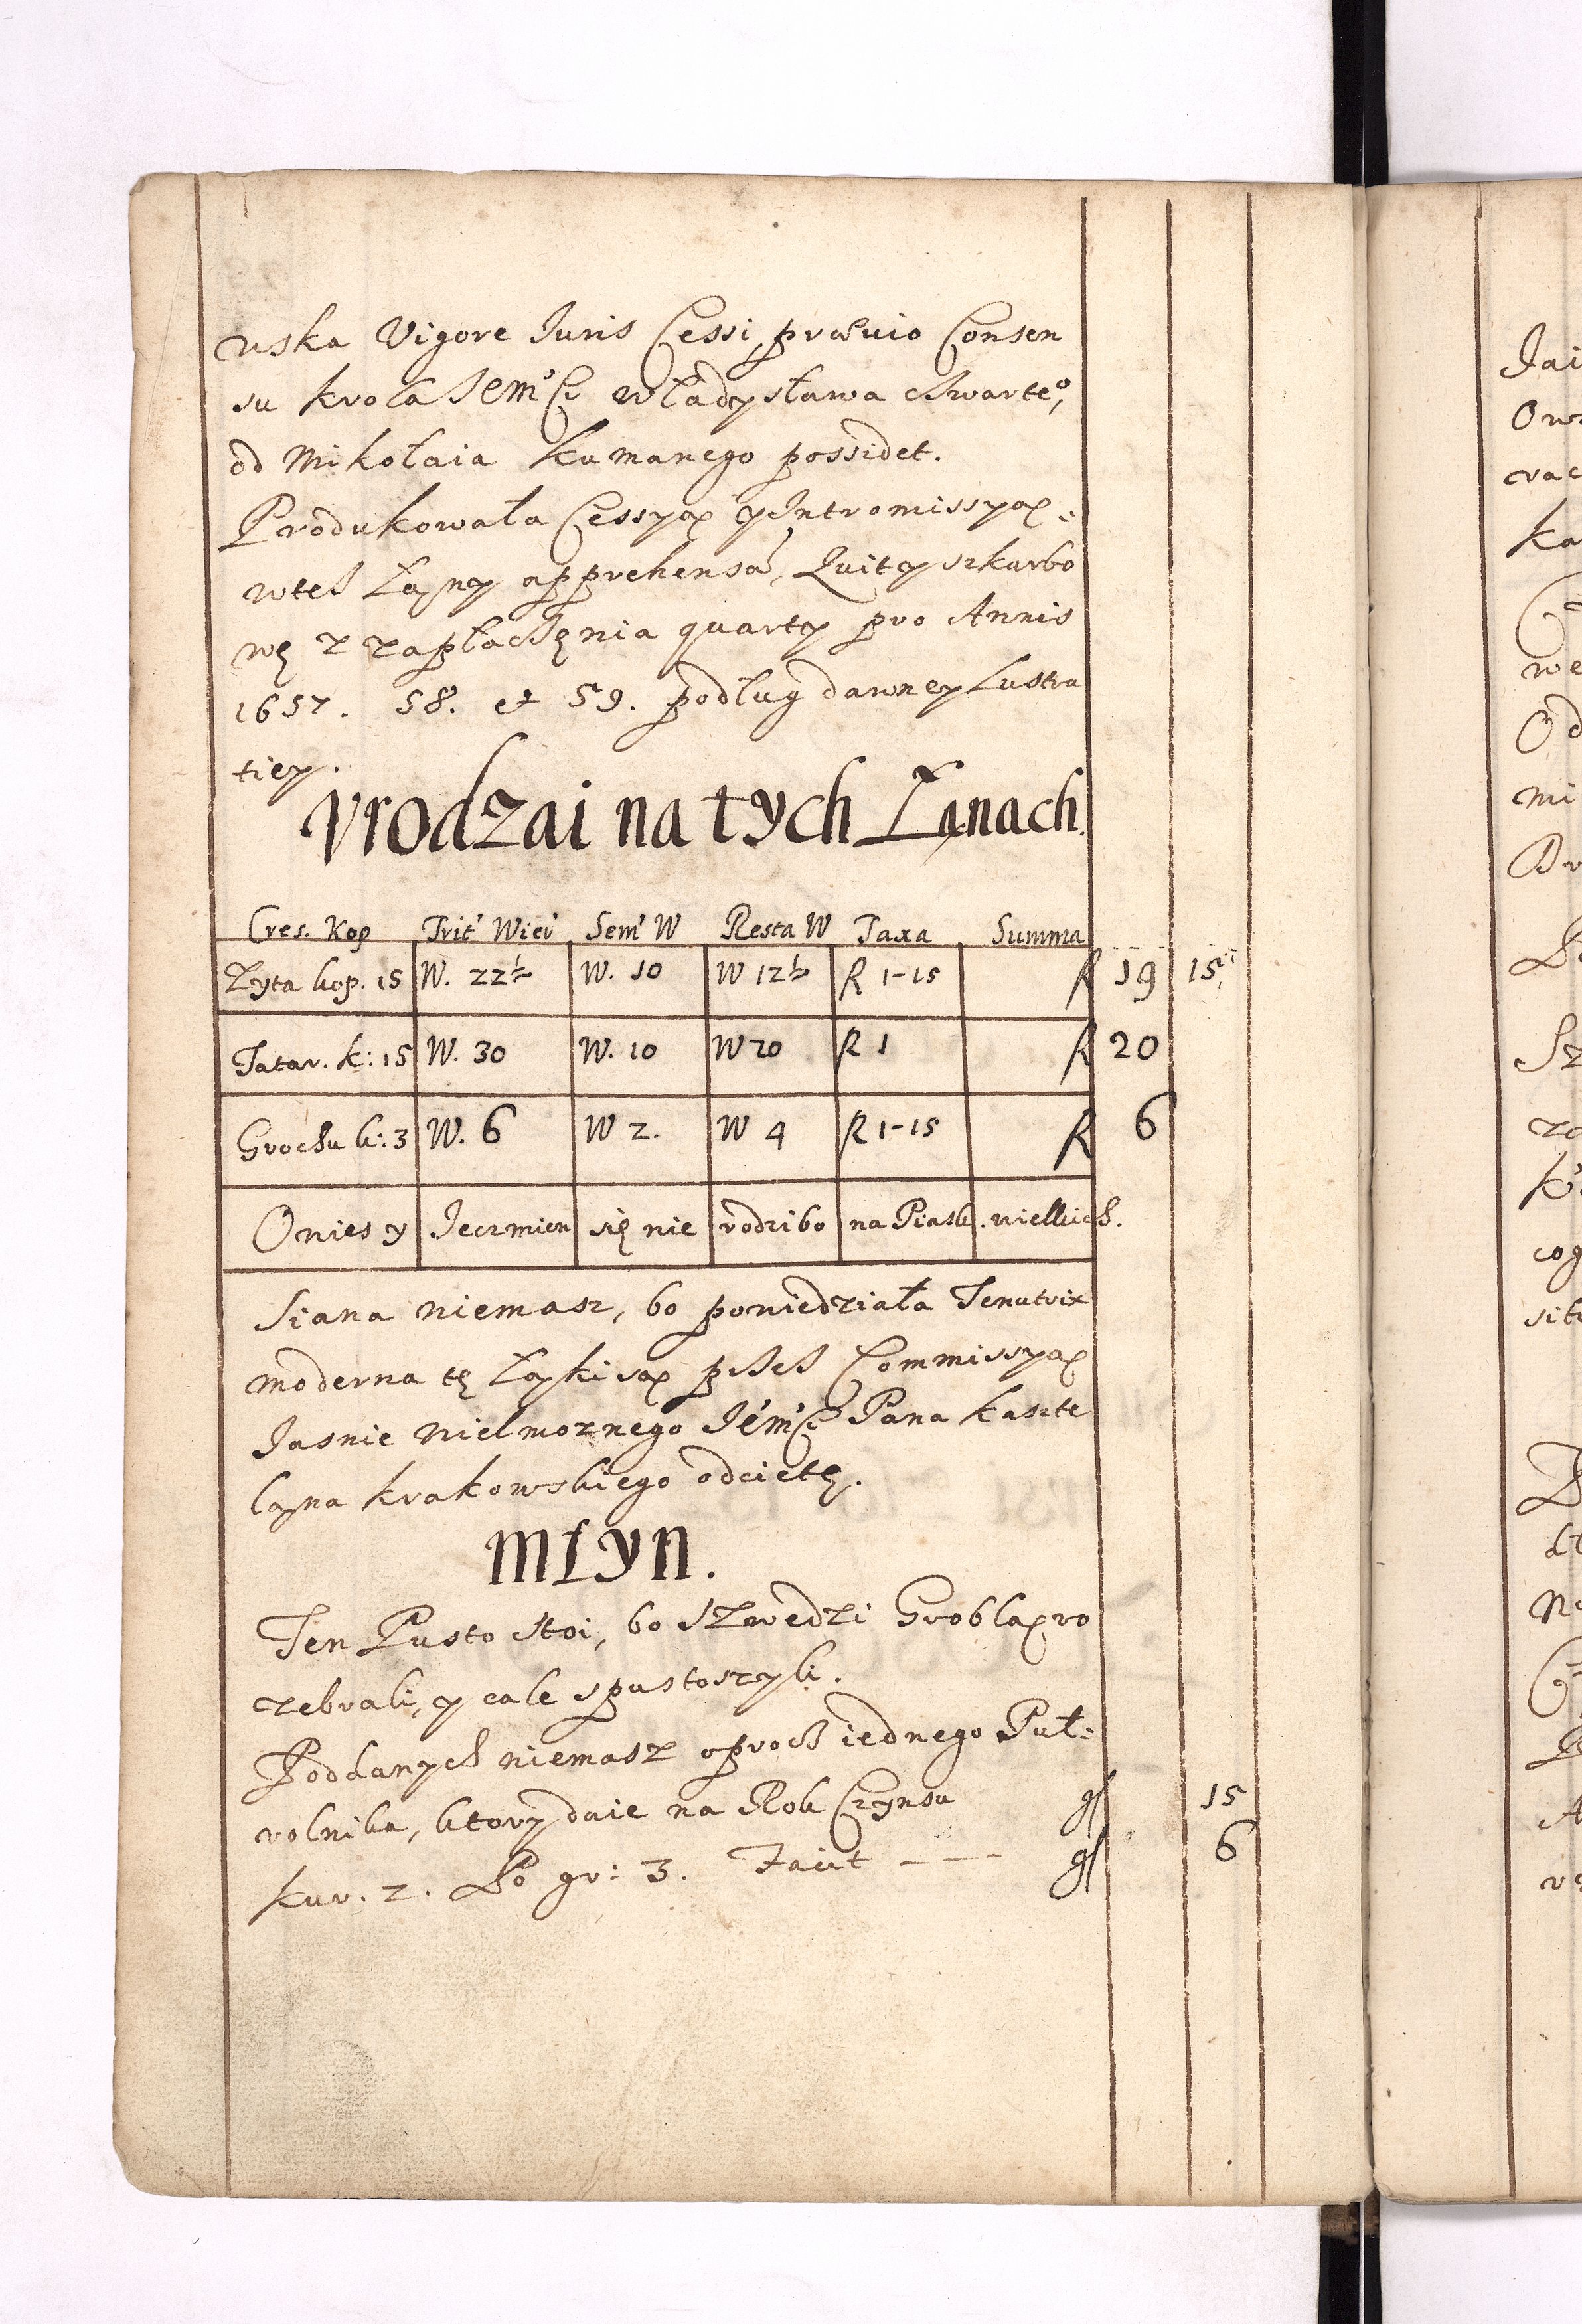 wska Vigore Iuris Cessi, præuio Consen
su krola Jem͡ci Władysława cżwarte°,
od Mikołaia Kumanego possidet.
Produkowała Cessyą y Intromissyą:
wteż Łąny apprehensa, Quity szkarbo
wę z zapłacżęnia quarty pro Annis
1657. 58. et 59. podług dawney Lustra
tiey.
Vrodzai na tych Łanach.
Cres. Kop Trit' Wier' Sem' W Resta W Taxa Summa
Zyta kop. 15 W. 22½ W. 10 W 12½ R 1-15 R 19 15
Tatar. k: 15 W. 30 W. 10 W 20 R 1 R 20
Grochu k: 3 W. 6 W 2. W 4 R 1-15 R 6
Owies y Ieczmien się nie rodzi bo na Piask. wielkich.
Siana niemasz, bo powiedziała Tenutrix
moderna tę Łąki są pżeż Commissyą
Iasnie wielmoznego Jem͡ci Pana kaszte
ląna krakowskiego odcietę.
Młyn.
Ten Pusto stoi, bo Szwedzi Groblą ro
zebrali, y cale spustoszyli.
Poddanych niemasz oprocż iednego Puł:
rolnika, ktory daie na Rok Czynsu gł 15
kur. 2. Po gr: 3. Faiut --- gł 6
Jai
Ow
rac
ka
we
Od
mi
Sz
cog